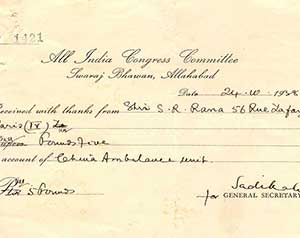 1421
All India Congress Committee
Swaraj Bhawan, Allahabad
Date 24.10.1938
Received with thanks from Shri S. R. Rana 56 Rue Lafay
Paris (IX)
Pounds five
account of China Ambulance Unit.
5 Pounds
Sadiq Ali
for GENERAL SECRETARY